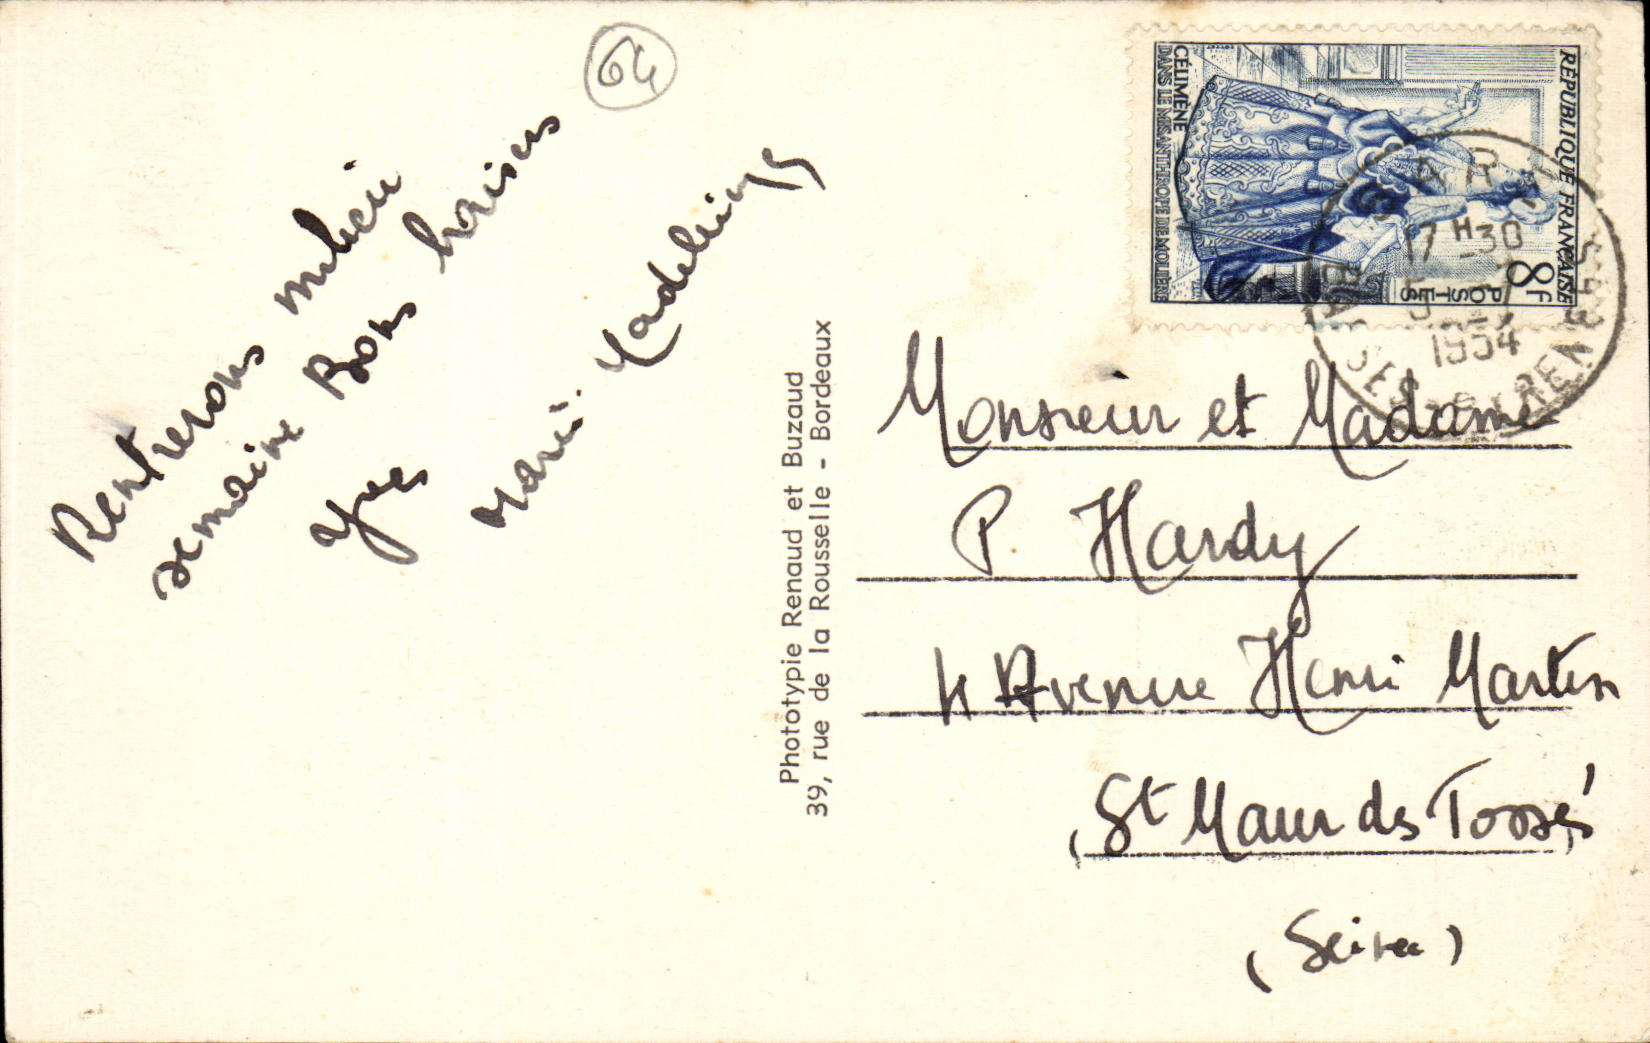 64
Rentrerons milieu
semaine Bons baisers
Yves
Marie. Madeleine
Phototypie Renaud et Buzaud
39, rue de la Rousselle - Bordeaux
RÉPUBLIQUE FRANÇAISE
8F
POSTES
CÉLIMÈNE
DANS LE MISANTHROPE DE MOLIÈRE
SARE
17 H 30
1954
BASSES-PYRENEES
Monsieur et Madame
P. Hardy
4 Avenue Henri Martin
St Maur des Fossés
(Seine)